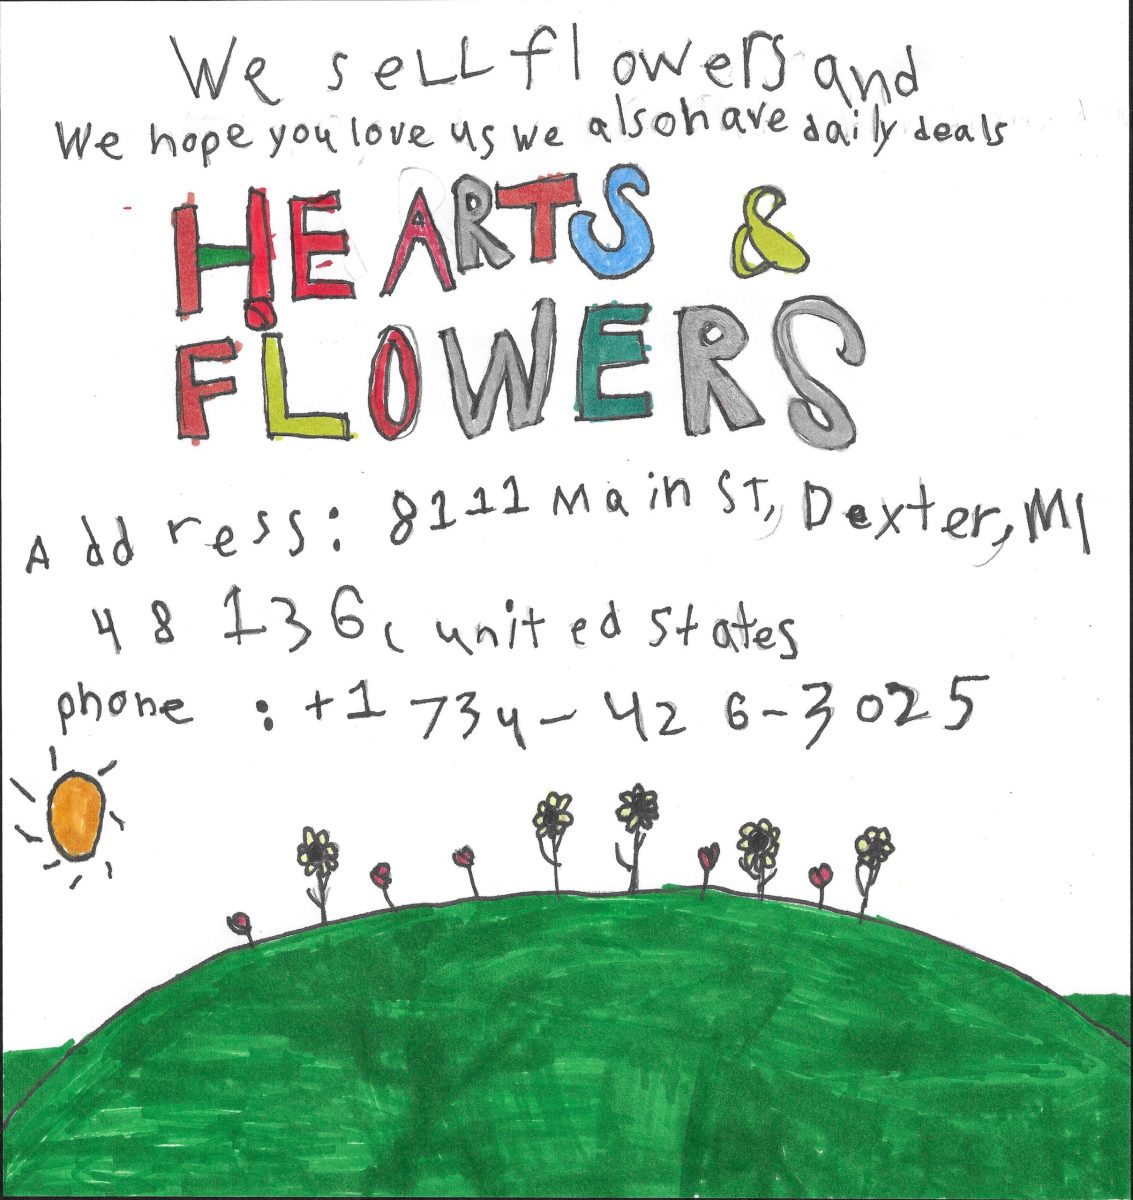 We sell flowers and
We hope you love us we also have daily deals
HEARTS &
FLOWERS
Address: 8111 Main ST, Dexter, MI
48136, united states
phone : +1 734-426-3025